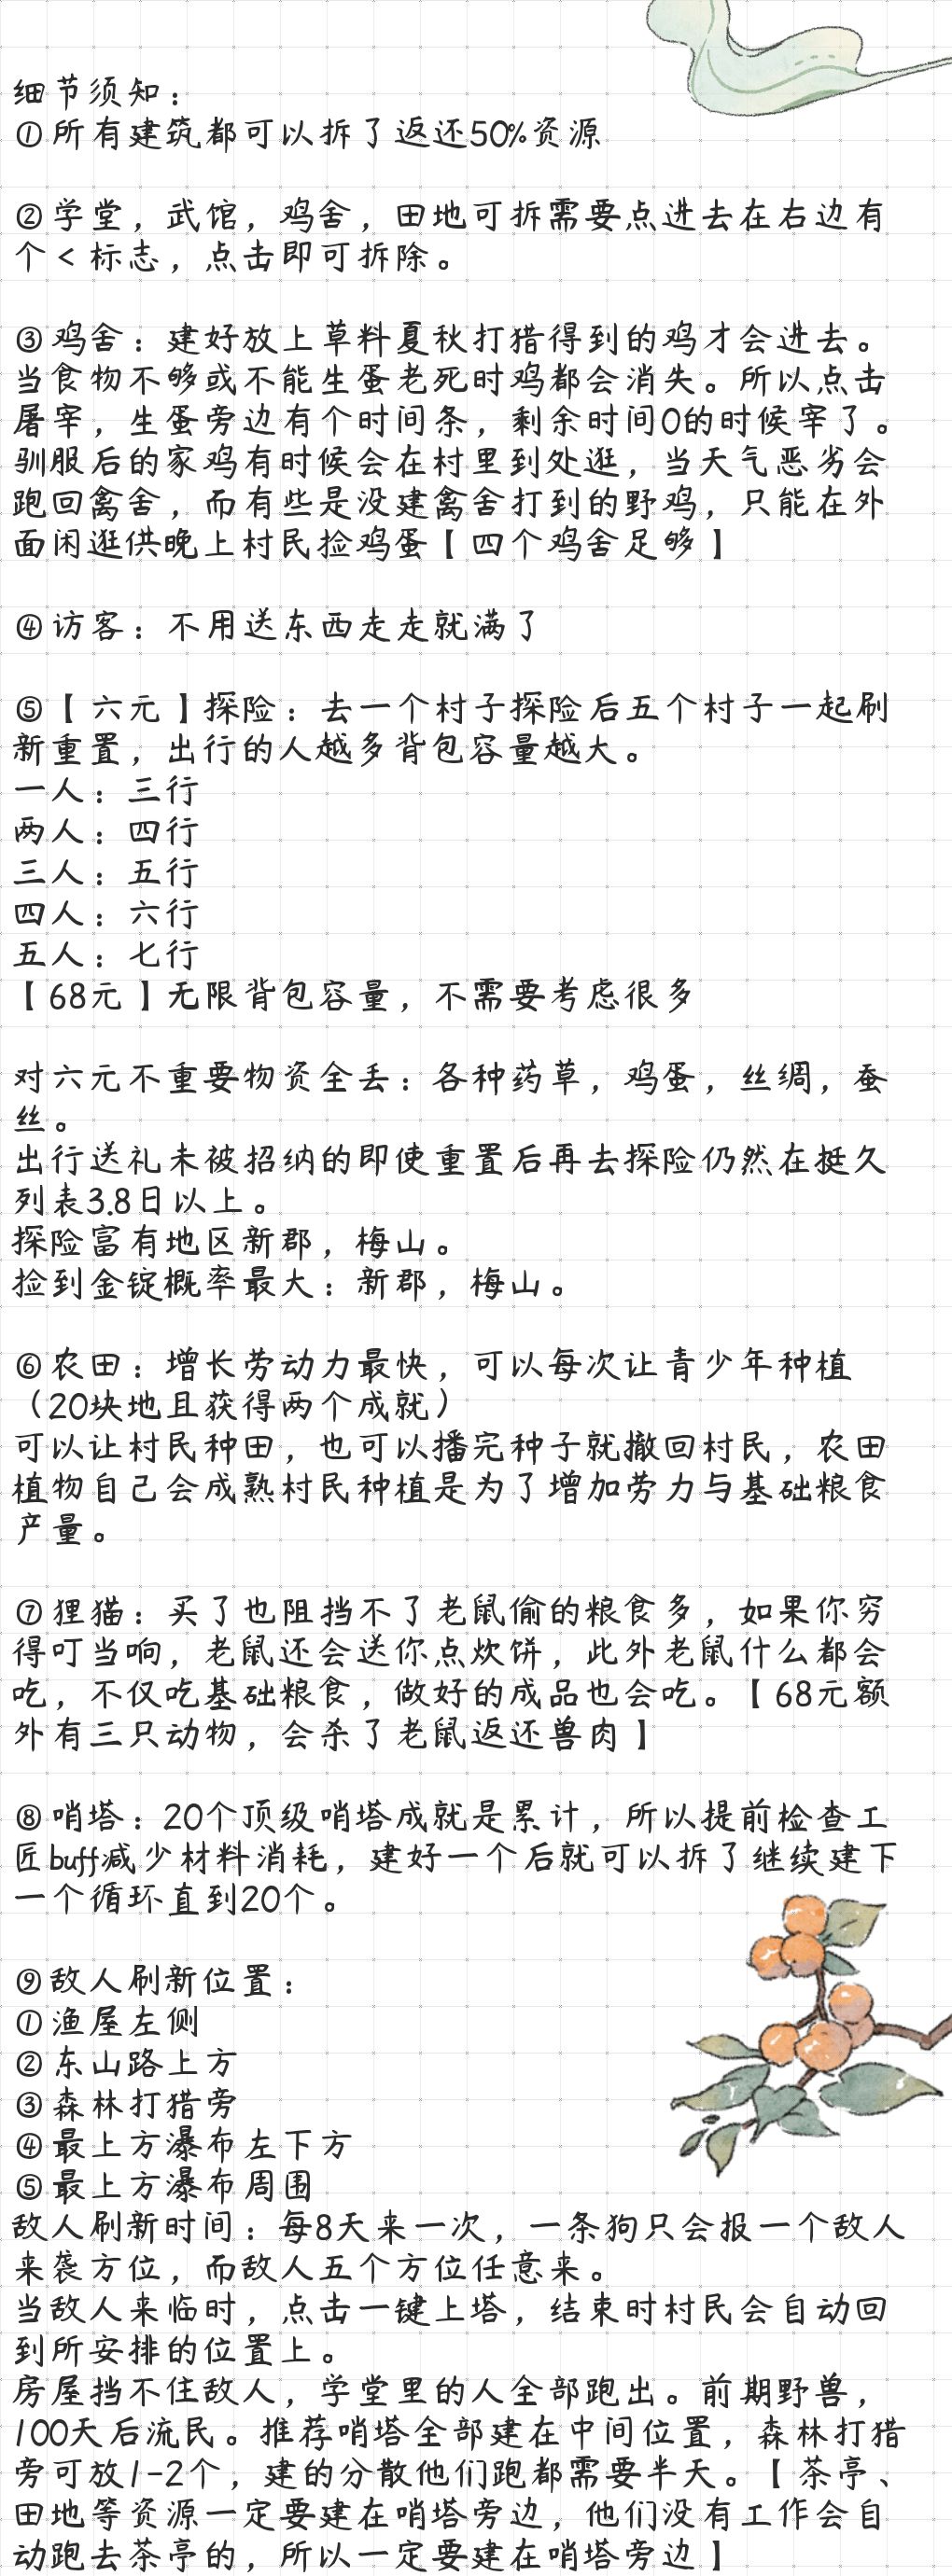 细节须知：
①所有建筑都可以拆了返还50%资源
②学堂，武馆，鸡舍，田地可拆需要点进去在右边有
个＜标志，点击即可拆除。
③鸡舍：建好放上草料夏秋打猎得到的鸡才会进去。
当食物不够或不能生蛋老死时鸡都会消失。所以点击
屠宰，生蛋旁边有个时间条，剩余时间0的时候宰了。
驯服后的家鸡有时候会在村里到处逛，当天气恶劣会
跑回禽舍，而有些是没建禽舍打到的野鸡，只能在外
面闲逛供晚上村民捡鸡蛋【四个鸡舍足够】
④访客：不用送东西走走就满了
⑤【六元】探险：去一个村子探险后五个村子一起刷
新重置，出行的人越多背包容量越大。
一人：三行
两人：四行
三人：五行
四人：六行
五人：七行
【68元】无限背包容量，不需要考虑很多
对六元不重要物资全丢：各种药草，鸡蛋，丝绸，蚕
丝。
出行送礼未被招纳的即使重置后再去探险仍然在挺久
列表3.8日以上。
探险富有地区新郡，梅山。
捡到金锭概率最大：新郡，梅山。
⑥农田：增长劳动力最快，可以每次让青少年种植
（20块地且获得两个成就）
可以让村民种田，也可以播完种子就撤回村民，农田
植物自己会成熟村民种植是为了增加劳力与基础粮食
产量。
⑦狸猫：买了也阻挡不了老鼠偷的粮食多，如果你穷
得叮当响，老鼠还会送你点炊饼，此外老鼠什么都会
吃，不仅吃基础粮食，做好的成品也会吃。【68元额
外有三只动物，会杀了老鼠返还兽肉】
⑧哨塔：20个顶级哨塔成就是累计，所以提前检查工
匠buff减少材料消耗，建好一个后就可以拆了继续建下
一个循环直到20个。
⑨敌人刷新位置：
①渔屋左侧
②东山路上方
③森林打猎旁
④最上方瀑布左下方
⑤最上方瀑布周围
敌人刷新时间：每8天来一次，一条狗只会报一个敌人
来袭方位，而敌人五个方位任意来。
当敌人来临时，点击一键上塔，结束时村民会自动回
到所安排的位置上。
房屋挡不住敌人，学堂里的人全部跑出。前期野兽，
100天后流民。推荐哨塔全部建在中间位置，森林打猎
旁可放1-2个，建的分散他们跑都需要半天。【茶亭、
田地等资源一定要建在哨塔旁边，他们没有工作会自
动跑去茶亭的，所以一定要建在哨塔旁边】